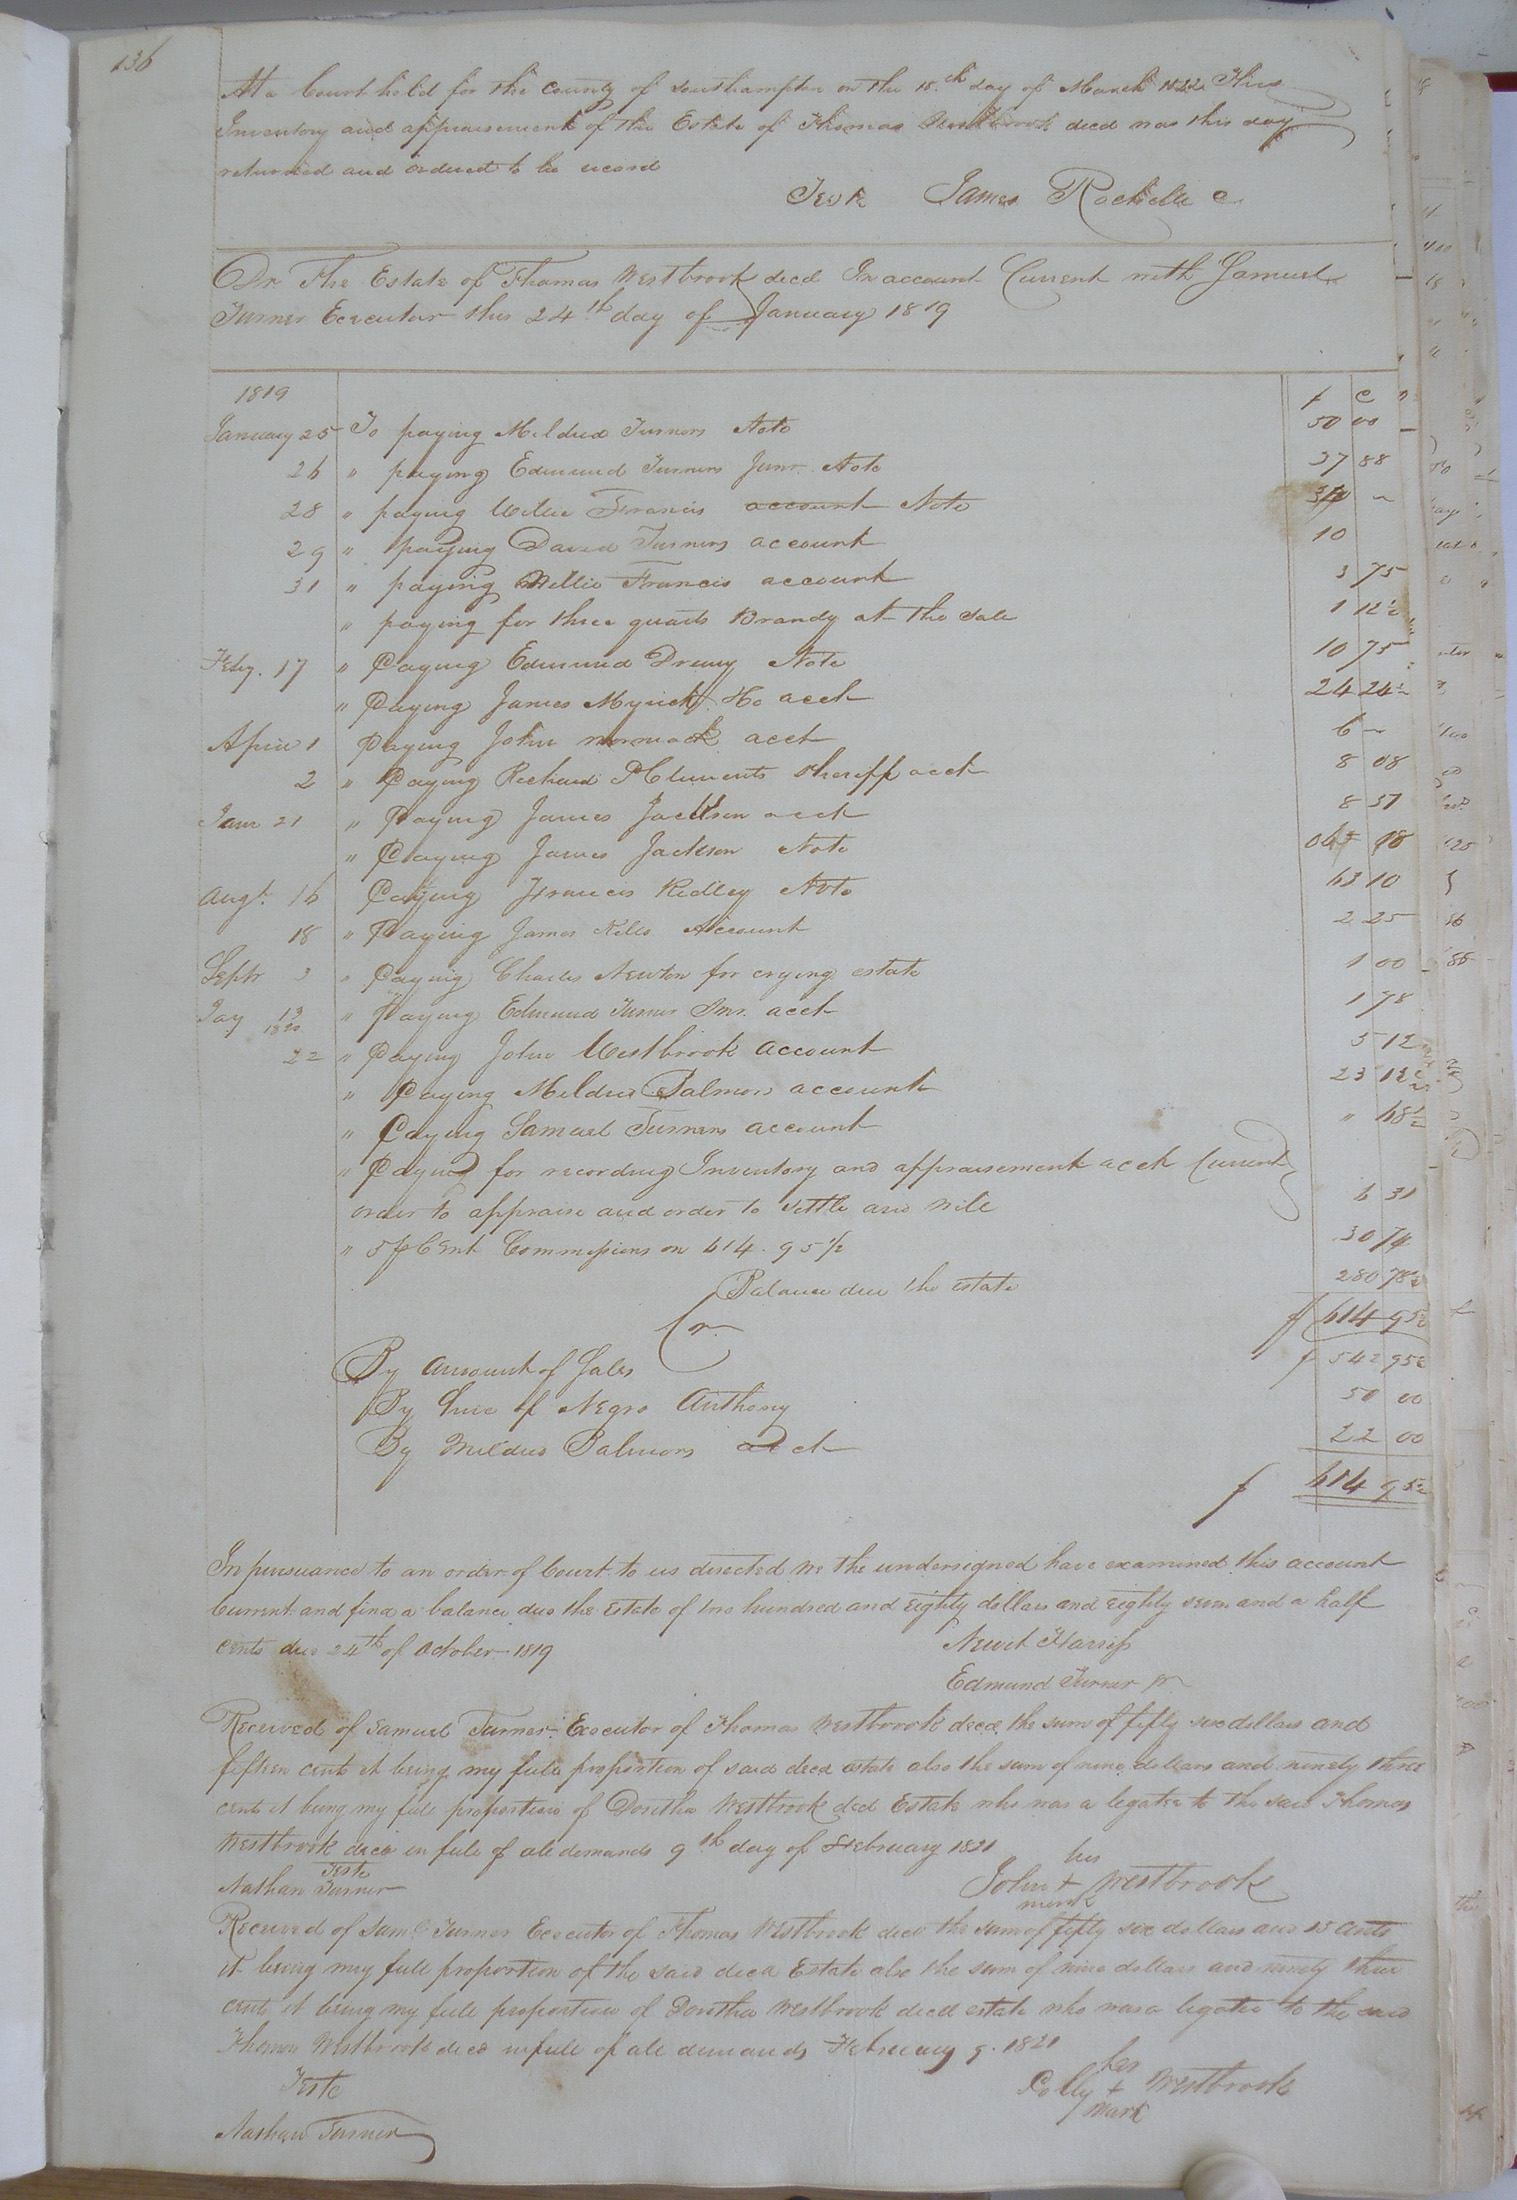 136
At a Court held for the County of Southampton on the 18th day of March 1822 This
Inventory and appraisement of the Estate of Thomas Westbrook decd was this day
returned and ordered to be record
Teste James Rochelle C
Dr The Estate of Thomas Westbrook decd In account Current with Samuel
Turner Executor this 24th day of January 1819
1819 $ C
January 25 To paying Mildred Turners Note 50 00
26 " paying Edmund Turners Junr. Note 37 88
28 " paying Willie Francis account Note
29 " paying David Turners account 10
31 " paying Willie Francis account 3 75
" paying for three quarts Brandy at the Sale 1 12½
Feby. 17 " Paying Edmund Drewry Note 10 75
" Paying James Myrick & Co acct 24 24½
April 1 Paying John acct 6 ~
2 " Paying Richard P Clements Sheriff acct 8 08
21 " Paying James Jackson acct 8 37
" Paying James Jackson Note
Augt. 16 Paying Francis Ridley Note 63 10
18 " Paying James Account 2 25
Septr 3 " Paying Charles Newton for crying estate 1 00
Jay 13 1820 " Paying Edmund Turner Snr. acct 1 98
22 " Paying John Westbrook account 5 12
" Paying Mildred Balmors account 23
" Paying Samuel Turners account " 68½
" Paying for recording Inventory and appraisement acct Current
order to appraise and order to settle and will 6 31
" 5 p Cent Commissions on 614. 95½ 30 74
Balance due the estate 280 78½
$ 614 95½
Cr
By amount of Sales $ 542 95½
By hire of Negro Anthony 50 00
By Mildred Balmors acct 22 00
$ 614 95½
In pursuance to an order of Court to us directed we the undersigned have examined this account
Current and find a balance due the Estate of two hundred and Eighty dollars and Eighty seven and a half
cents due 24th of October 1819
Newit Harris
Edmund Turner Jr
Received of Samuel Turner Executor of Thomas Westbrook decd. the sum of fifty six dollars and
fifteen cents it being my full proportion of said decd estate also the sum of nine dollars and ninety three
cents it being my full proportion of Doritha Westbrook decd Estate who was a legatee to the said Thomas
Westbrook decd in full of all demands 9th day of February 1821
Teste his
Nathan Turner John + Westbrook
mark
Received of Saml Turner Executor of Thomas Westbrook decd the sum of fifty six dollars and 15 cents
it being my full proportion of the said decd Estate also the sum of nine dollars and ninety three
cents it being my full proportion of Doritha Westbrook decd estate who was a legatee to the said
Thomas Westbrook decd in full of all demands February 9. 1821
Teste her
Polly + Westbrook
mark
Nathan Turner